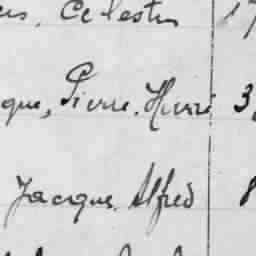 Celestin 17
que, Pierre. Henri 3
Jacques. Alfred 8